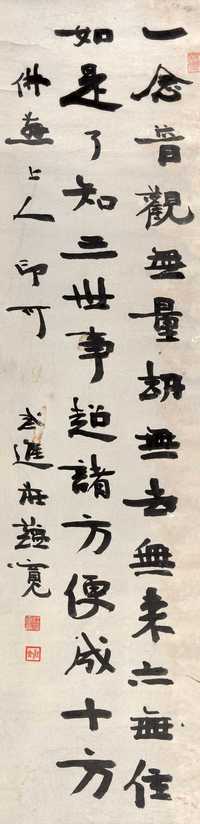 一念普觀無量劫無去無来亦無住
如是了知三世事超諸方便成十方
佛無上人印可 武進莊蘊寬